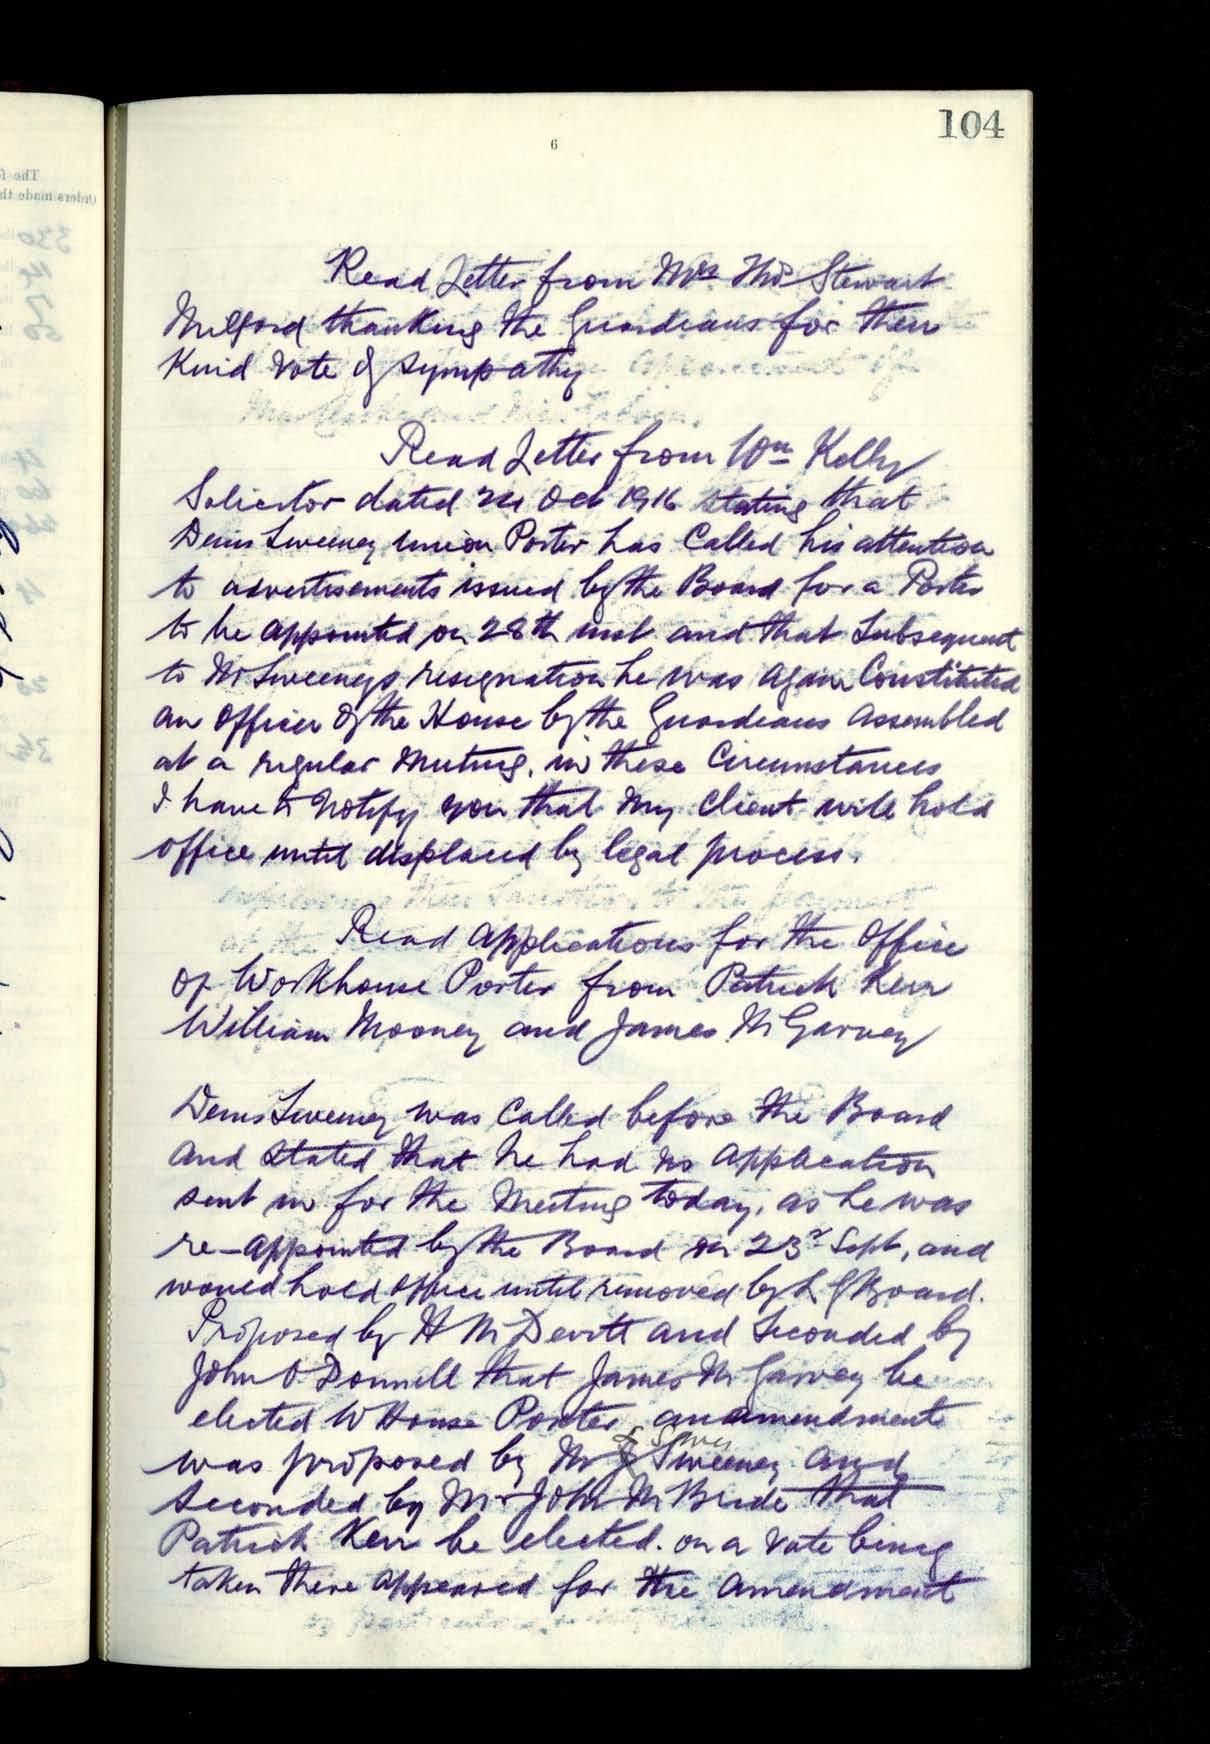 104
6
Read Letter from Mrs Thos Stewart
Milford thanking the Guardians for their
Kind vote of sympathy
Read Letter from Wm Kelly
Solicitor dated 24 Oct 1916 stating that
Denis Sweeney Union Porter has Called his attention
to advertisements issued by the Board for a Porter
to be appointed on 28th inst and that Subsequent
to Mr Sweeneys resignation he was again Constituted
an Officer of the House by the Guardians assembled
at a regular Meeting, in these Circumstances
I have to Notify you that my Client will hold
office until displaced by legal process.
Read applications for the Office
of Workhouse Porter from Patrick Kerr
William Mooney and James McGarvey
Denis Sweeney was Called before the Board
and stated that he had no application
sent in for the Meeting today, as he was
re-appointed by the Board on 23rd Sept, and
would hold office until removed by L G Board.
Proposed by H McDevitt and Seconded by
John O.Donnell that James McGarvey be
elected W House Porter an amendment
was proposed by Mr Sweeney and
Seconded by Mr John McBride that
Patrick Kerr be elected. on a vote being
taken there appeared for the amendment
The f
Orders made th